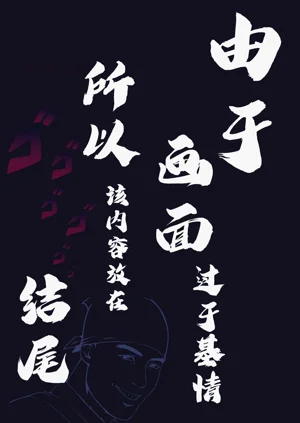 由于
画面
过于基情
所以
该内容放在
结尾